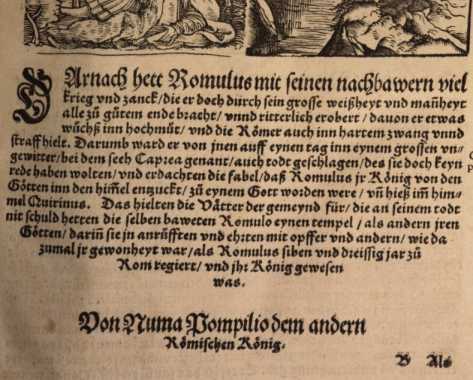 DArnach hett Romulus mit seinen nachbawern viel
krieg vnd zanck/ die er doch durch sein grosse weißheyt vnd mañheyt
alle zů gůtem ende bracht/ vnnd ritterlich erobert/ dauon er etwas
wůchß inn hochmůt/ vnd die Römer auch inn hartem zwang vnnd
straff hielt. Darumb ward er von jnen auff eynen tag inn eynem grossen vn-
gewitter/ bei dem seeh Caprea genant/ auch todt geschlagen/ des sie doch keyn
rede haben wolten/ vnd erdachten die fabel/ daß Romulus jr König von den
Göttern inn den him̃el entzuckt/ zů eynem Gott worden were/ vñ hieß im̃ him-
mel Quirinus. Das hielten die Vätter der gemeynd für/ die an seinem todt
nit schuld hetten die selben baweten Romulo eynen tempel/ als andern jren
Götten/ dariñ sie jn anrůfften vnd ehrten mit opffer vnd andern/ wie da
zumal jr gewonheyt war/ als Romulus siben vnd dreissig jar zů
Rom regiert/ vnd jhr König gewesen
was.
Von Numa Pompilio dem andern
Römischen König.
B Als